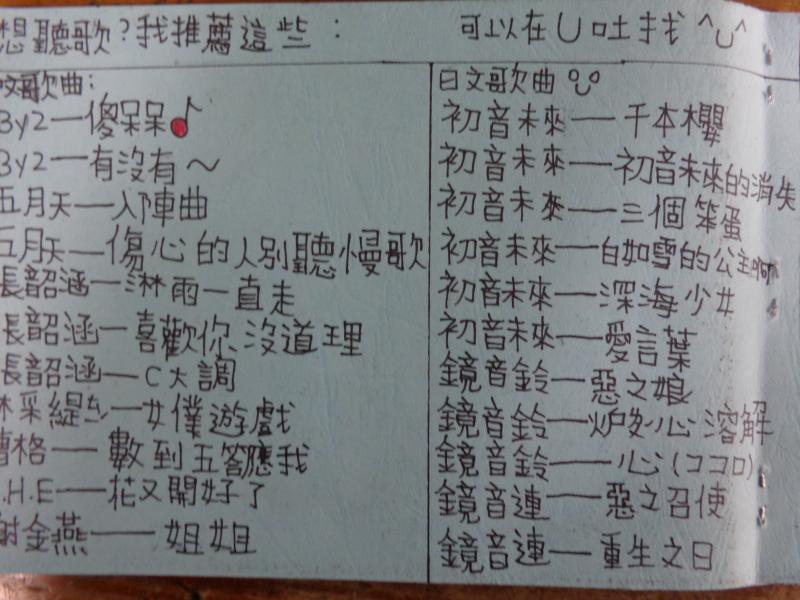 想聽歌?我推薦這些:
可以在U吐找^U^
文歌曲:
By2—傻呆呆♪
By2—有沒有~
五月天—入陣曲
五月天—傷心的人別聽慢歌
張韶涵—淋雨一直走
張韶涵—喜歡你沒道理
張韶涵—C大調
林采緹—女僕遊戲
曹格—數到五答應我
.H.E—花又開好了
謝金燕—姐姐
日文歌曲
初音未來—千本櫻
初音未來—初音未來的消失
初音未來—三個笨蛋
初音未來—白如雪的公主啊
初音未來—深海少女
初音未來—愛言葉
鏡音鈴—惡之娘
鏡音鈴—爐心溶解
鏡音鈴—心(ココロ)
鏡音連—惡之召使
鏡音連—重生之日